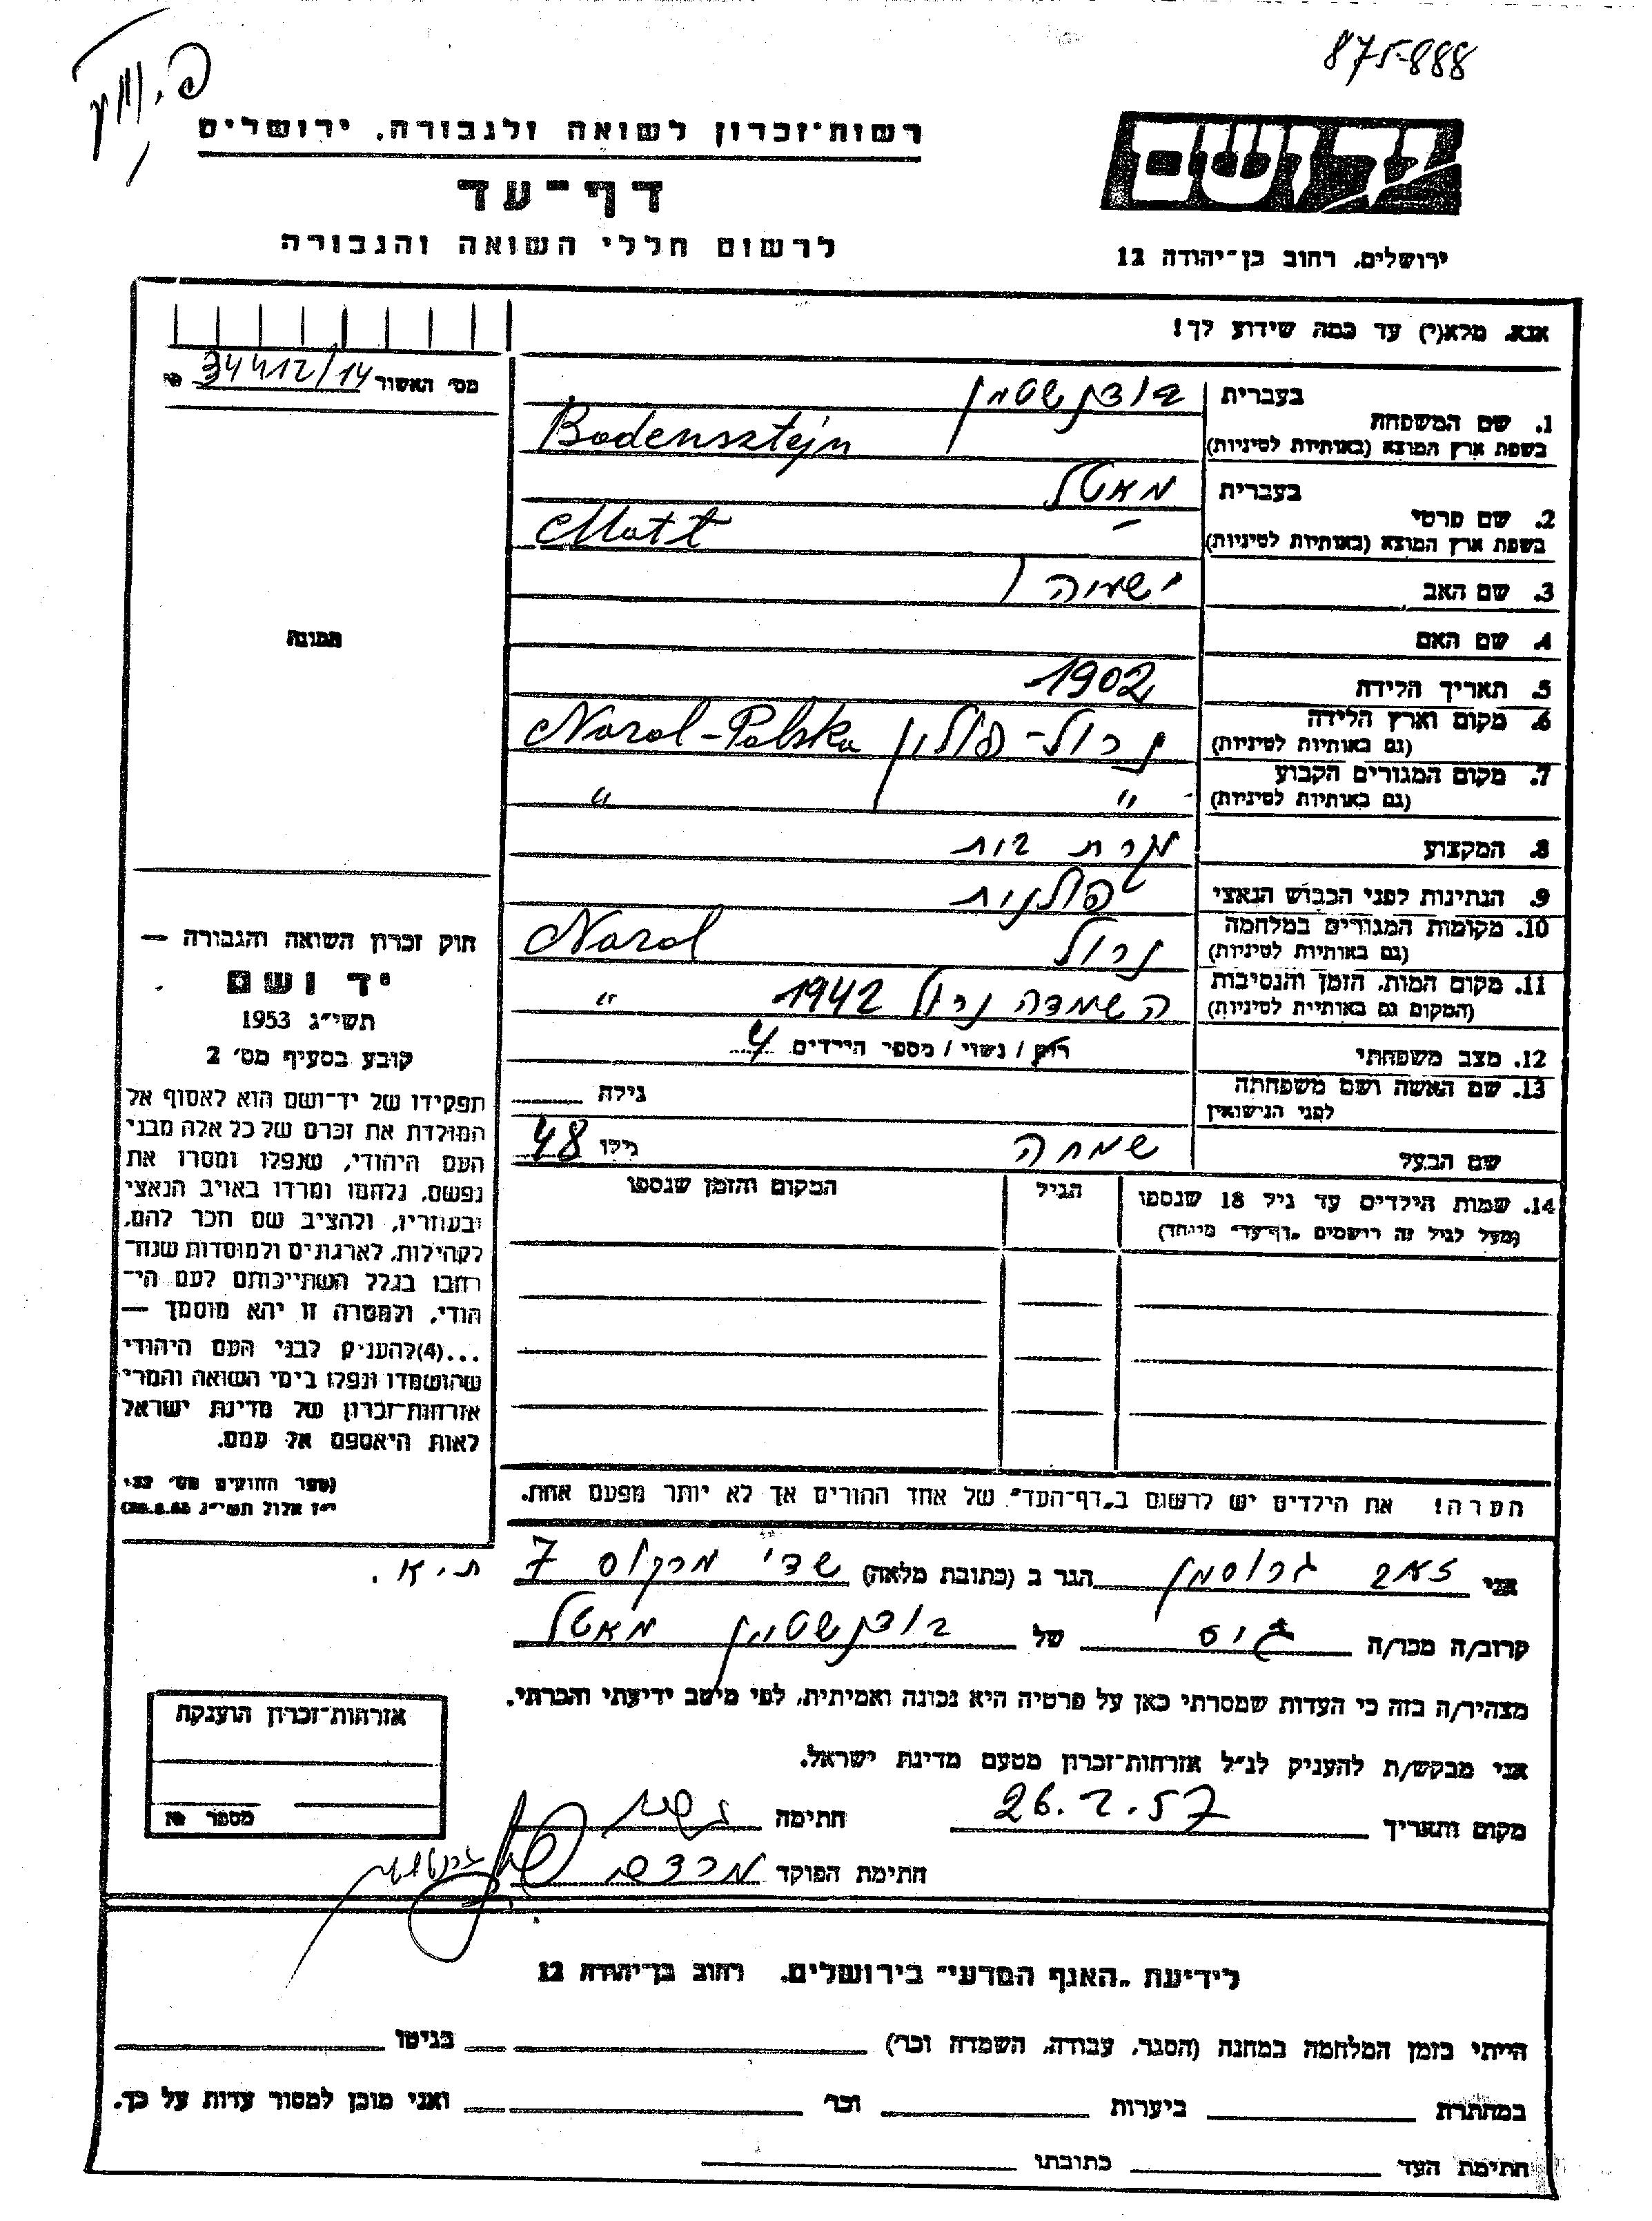 875-888
רשות־זכרון לשואה ולגבורה, ירושלים
דף־עד
לרשום חללי השואה והגבורה
יד ושם
ירושלים, רחוב בן־יהודה 12
אנא, מלא(י) עד כמה שידוע לך!
מס׳ האשור 34412/14 №
1. שם המשפחה
בעברית בודנשטיין
בשפת ארץ המוצא (באותיות לטיניות) Bodensztejn
2. שם פרטי
בעברית מאטל
בשפת ארץ המוצא (באותיות לטיניות) Matt
3. שם האב ישעיה
4. שם האם
5. תאריך הלידה 1902
6. מקום וארץ הלידה
(גם באותיות לטיניות) נרול - פולין Narol-Polska
7. מקום המגורים הקבוע
(גם באותיות לטיניות) " "
8. המקצוע עקרת בית
9. הנתינות לפני הכבוש הנאצי פולנית
10. מקומות המגורים במלחמה
(גם באותיות לטיניות) נרול Narol
11. מקום המות, הזמן והנסיבות
(המקום גם באותיות לטיניות) השמדה נרול 1942 "
12. מצב משפחתי רווק / נשוי / מספר הילדים 4
13. שם האשה ושם משפחתה
לפני הנישואין גילה
שם הבעל שמחה גילו 48
14. שמות הילדים עד גיל 18 שנספו
(מעל לגיל זה רושמים „דף־עד״ מיוחד)
הגיל
המקום והזמן שנספו
הערה! את הילדים יש לרשום ב„דף־העד״ של אחד ההורים אך לא יותר מפעם אחת.
תמונה
חוק זכרון השואה והגבורה —
יד ושם
תשי״ג 1953
קובע בסעיף מס׳ 2
תפקידו של יד־ושם הוא לאסוף אל
המולדת את זכרם של כל אלה מבני
העם היהודי, שנפלו ומסרו את
נפשם, נלחמו ומרדו באויב הנאצי
ובעוזריו, ולהציב שם וזכר להם,
לקהילות, לארגונים ולמוסדות שנח־
רבו בגלל השתייכותם לעם הי־
הודי, ולמטרה זו יהא מוסמך —
...(4) להעניק לבני העם היהודי
שהושמדו ונפלו בימי השואה והמרי
אזרחות־זכרון של מדינת ישראל
לאות היאספם אל עמם.
(ספר החוקים מס׳ 132,
י״ז אלול תשי״ג 28.8.53)
אני זאב גרוסמן הגר ב (כתובת מלאה) שדי מרקוס 7 ת.א.
קרוב/ה מכר/ה גיס של בודנשטיין מאטל
מצהיר/ה בזה כי העדות שמסרתי כאן על פרטיה היא נכונה ואמיתית, לפי מיטב ידיעתי והכרתי.
אני מבקש/ת להעניק לנ״ל אזרחות־זכרון מטעם מדינת ישראל.
מקום ותאריך 26.2.57 חתימה
חתימת הפוקד
אזרחות־זכרון הוענקה
מספר №
לידיעת „האגף המדעי״ בירושלים, רחוב בן־יהודה 12
הייתי בזמן המלחמה במחנה (הסגר, עבודה, השמדה וכר׳) בגיטו
במחתרת ביערות וכר׳ ואני מוכן למסור עדות על כך.
חתימת העד כתובתו